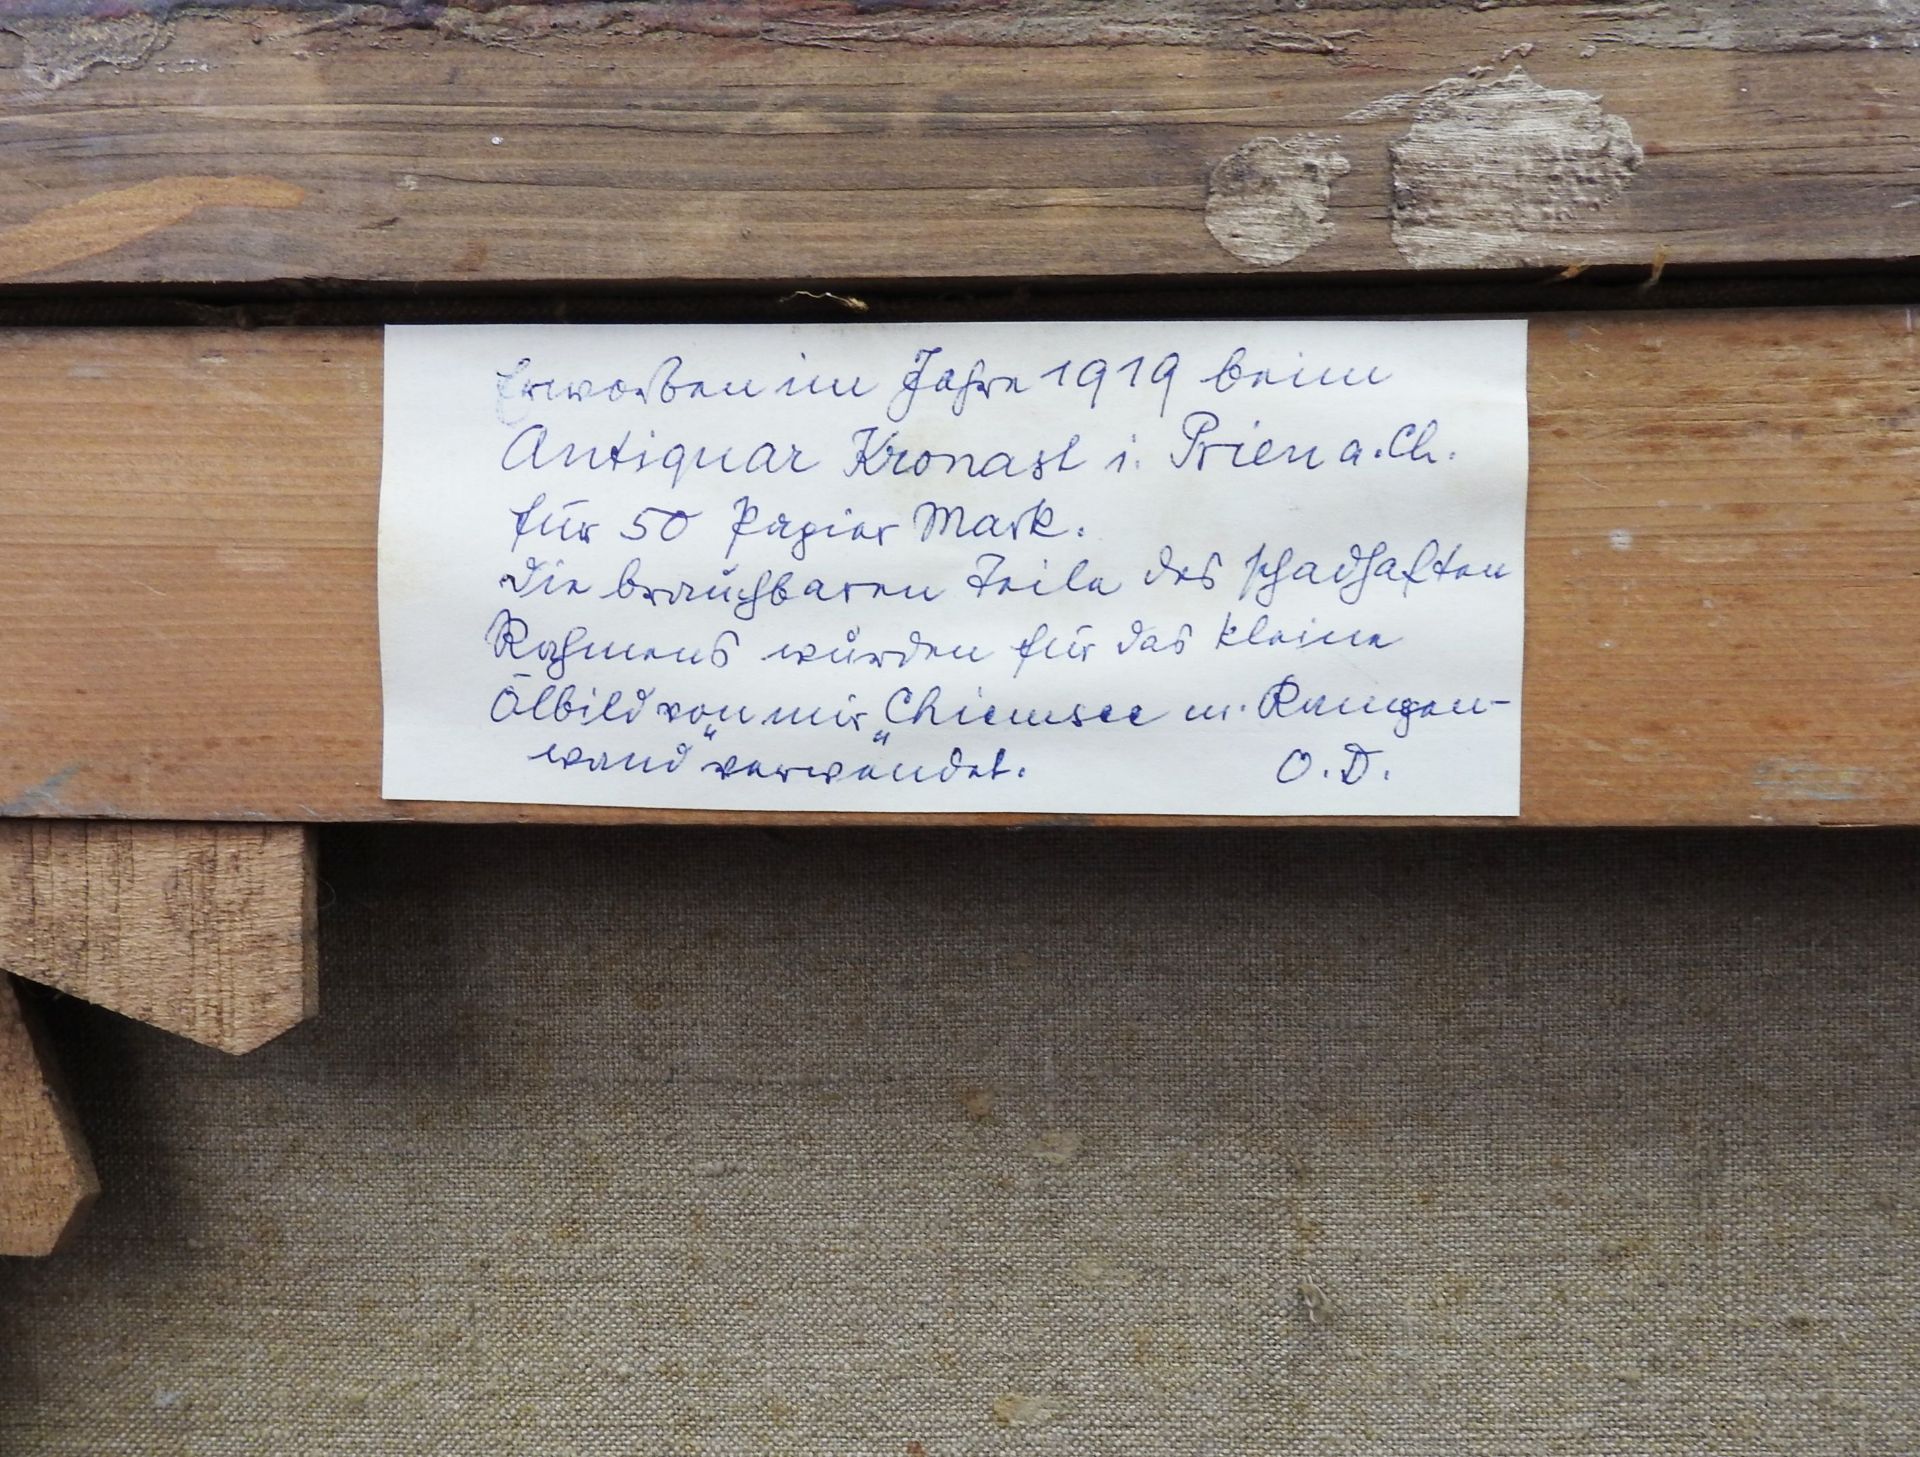 Erworben im Jahre 1919 beim
Antiquar Kronast i. Prien a. Ch.
für 50 Papier Mark.
Die brauchbaren Teile des schadhaften
Rahmens wurden für das kleine
Ölbild von mir „Chiemsee m.
wand" verwendet. O. D.